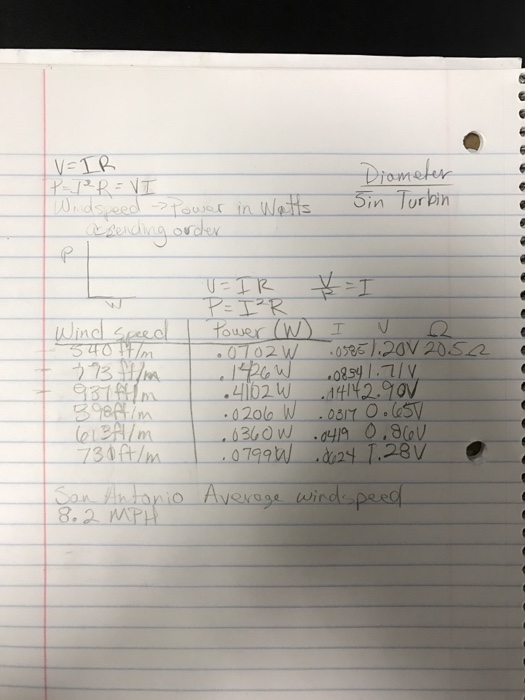 V=IR
P=I²R=VI
Diameter
5in Turbin
Windspeed → Power in Watts
order
P
W
V=IR V/R=I
P=I²R
Wind Speed Power (W) I V Ω
540 ft/m .0702W .0585 1.20V 20.5Ω
773 ft/m .1426W .0834 1.71V
937 ft/m .4102W .1414 2.90V
398 ft/m .0206 W .0317 0.65V
613 ft/m .0360W .0419 0.86V
730 ft/m .0799W .0624 1.28V
San Antonio Average windspeed
8.2 MPH